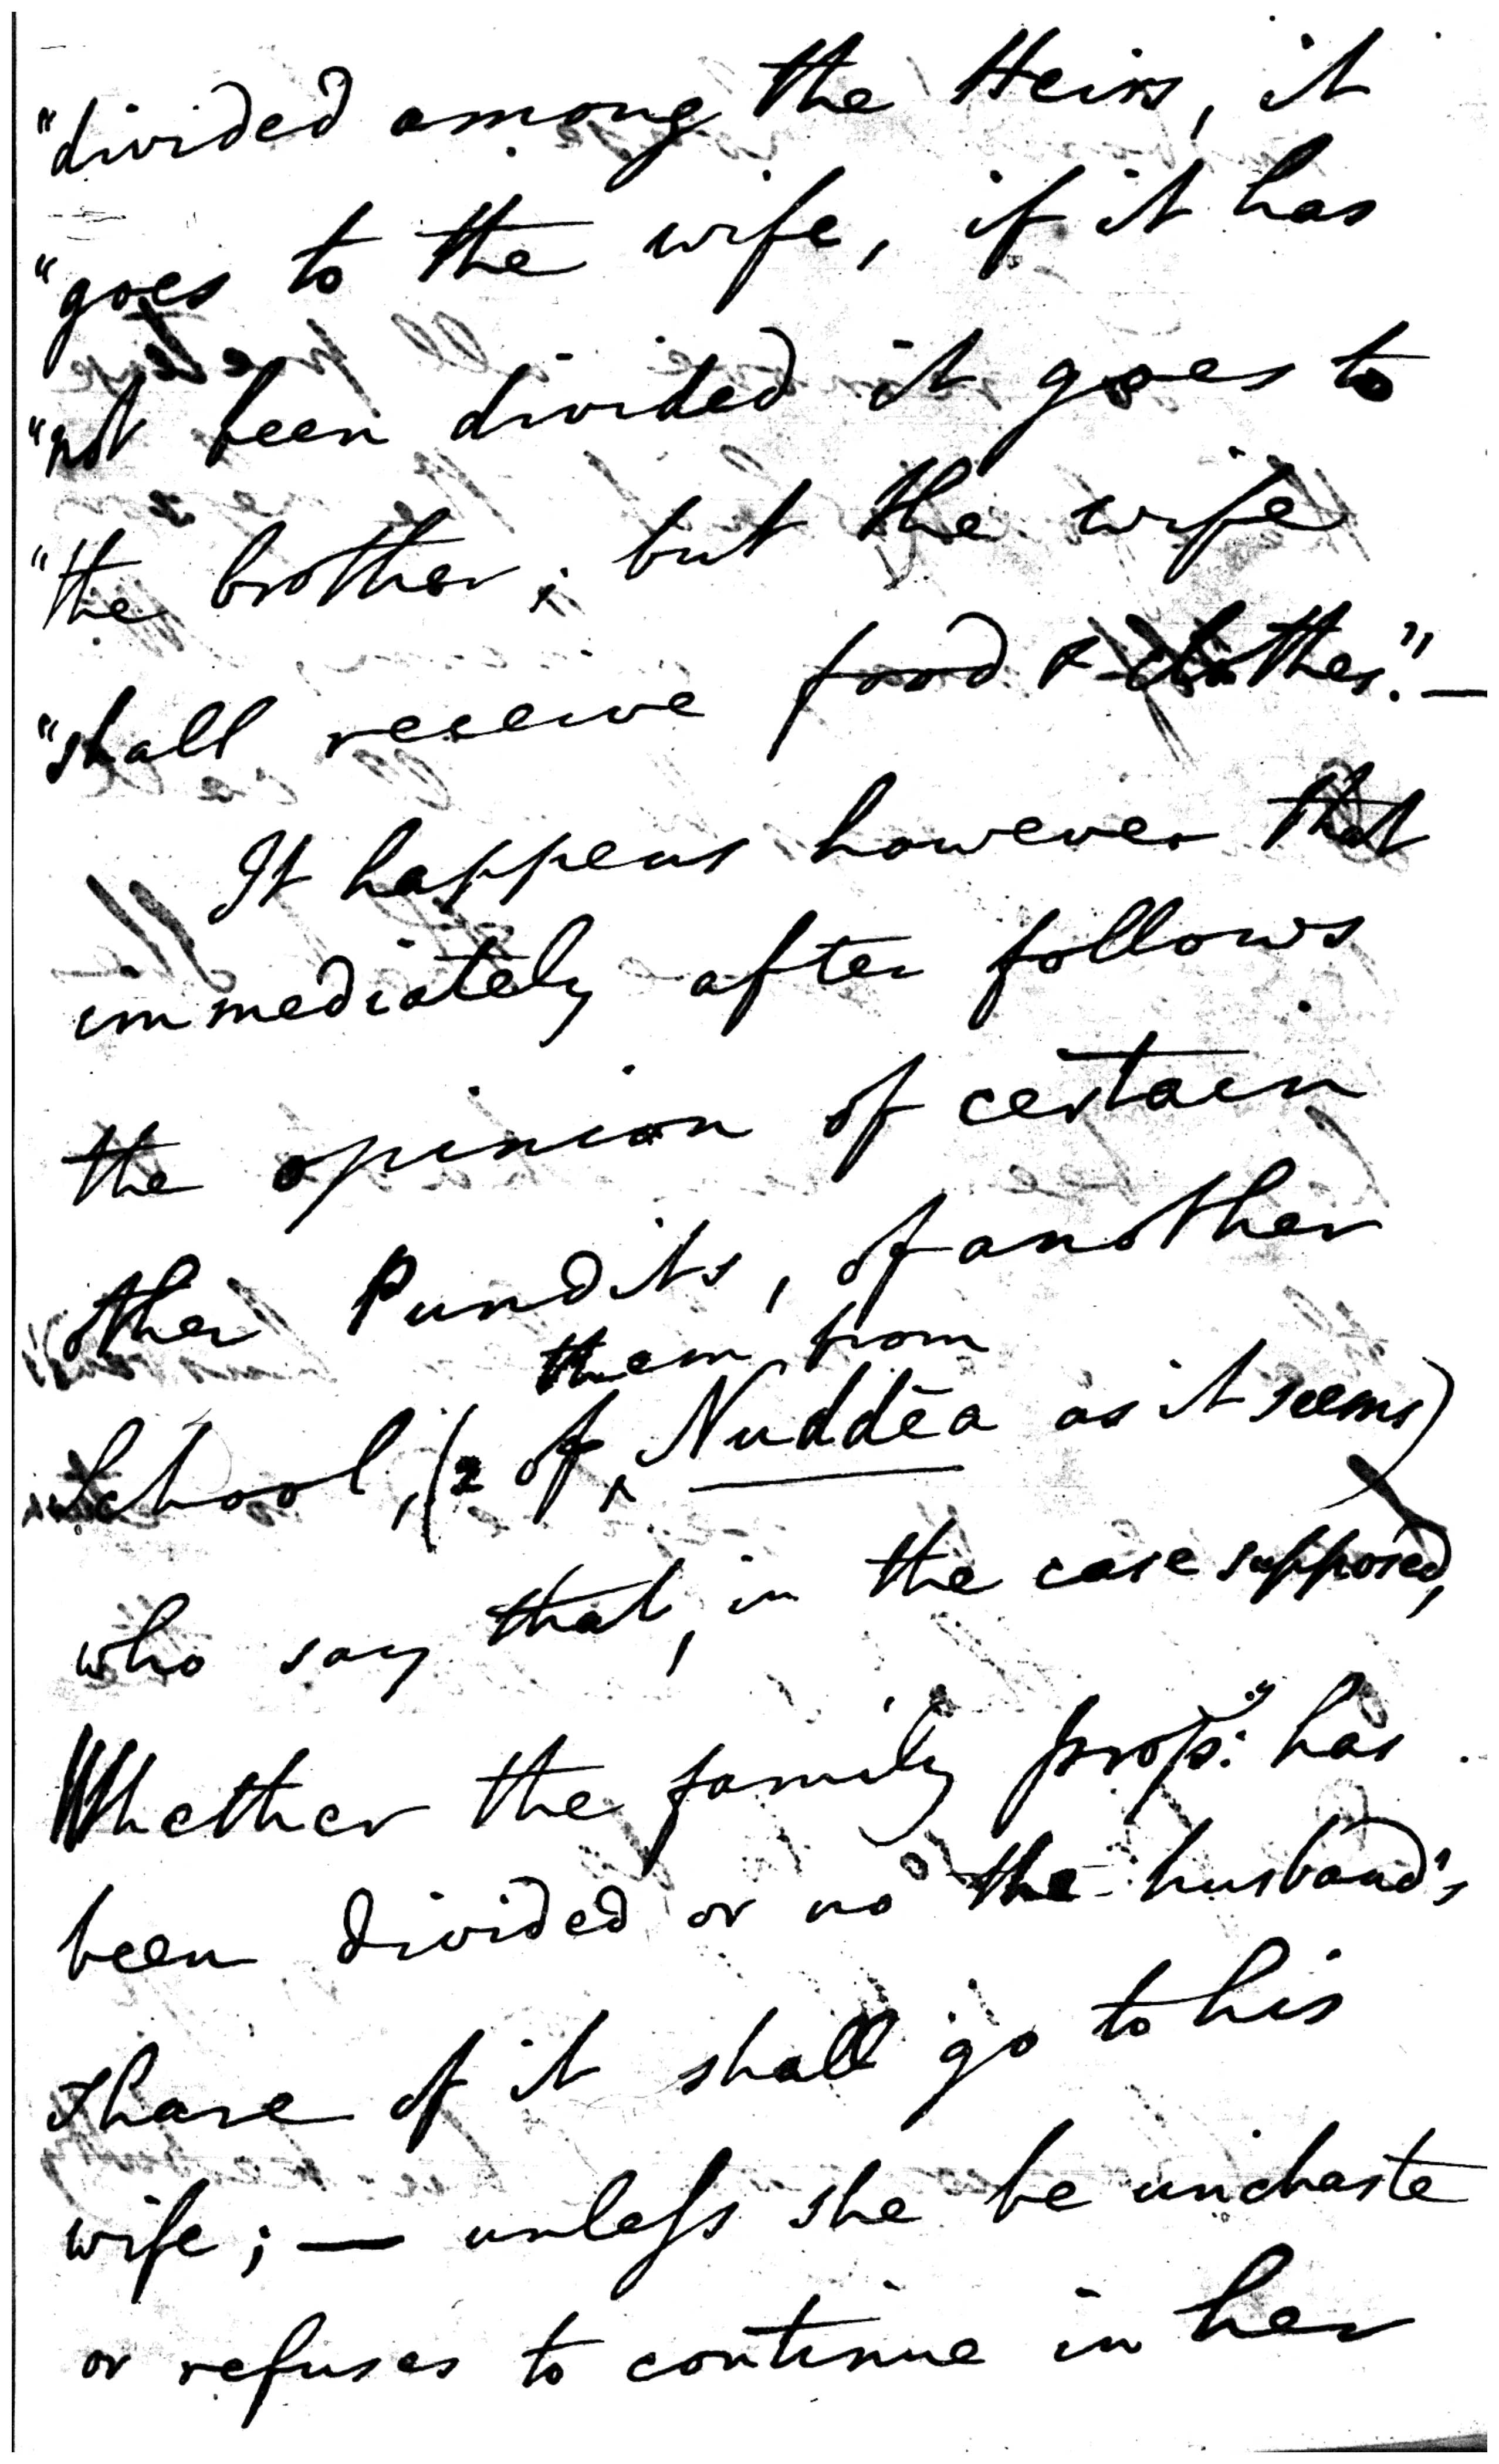 "divided among the Heirs, it
"goes to the wife, if it has
"not been divided it goes to
"the brother; but the wife
"shall receive food & clothes." —
It happens however that
immediately after follows
the opinion of certain
other Pundits, of another
them from
School, (2 of ‸ Nuddēa as it seems)
who say that, in the case supposed,
Whether the family prop:y has
been divided or no the husband's
share of it shall go to his
wife; — unless she be unchaste
or refuses to continue in her